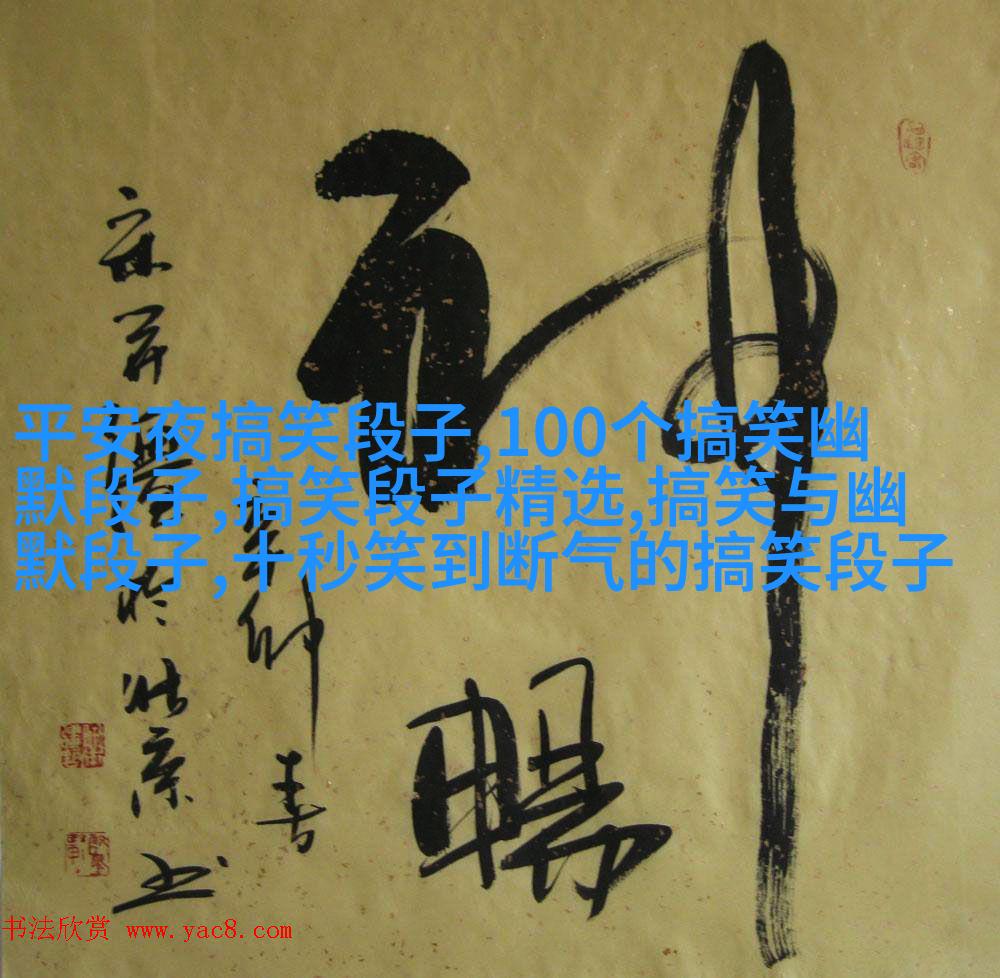 神
暢
仲春
於北京书
平安夜搞笑段子,100个搞笑幽
默段子,搞笑段子精选,搞笑与幽
默段子,十秒笑到断气的搞笑段子
书法欣赏 www.yac8.com